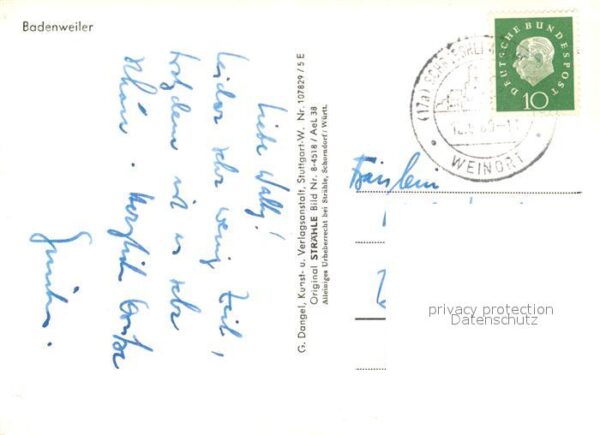 Badenweiler
Liebe Wally!
Leider sehr wenig Zeit,
trotzdem ist es sehr
schön. Herzliche Grüße
G. Dangel, Kunst- u. Verlagsanstalt, Stuttgart-W., Nr. 107829/5 E
Original STRÄHLE Bild Nr. 8-4518 / AeL 38
Alleiniges Urheberrecht bei Strähle, Schorndorf / Württ.
DEUTSCHE BUNDESPOST
10
(17a)
WEINORT
Fräulein
privacy protection
Datenschutz